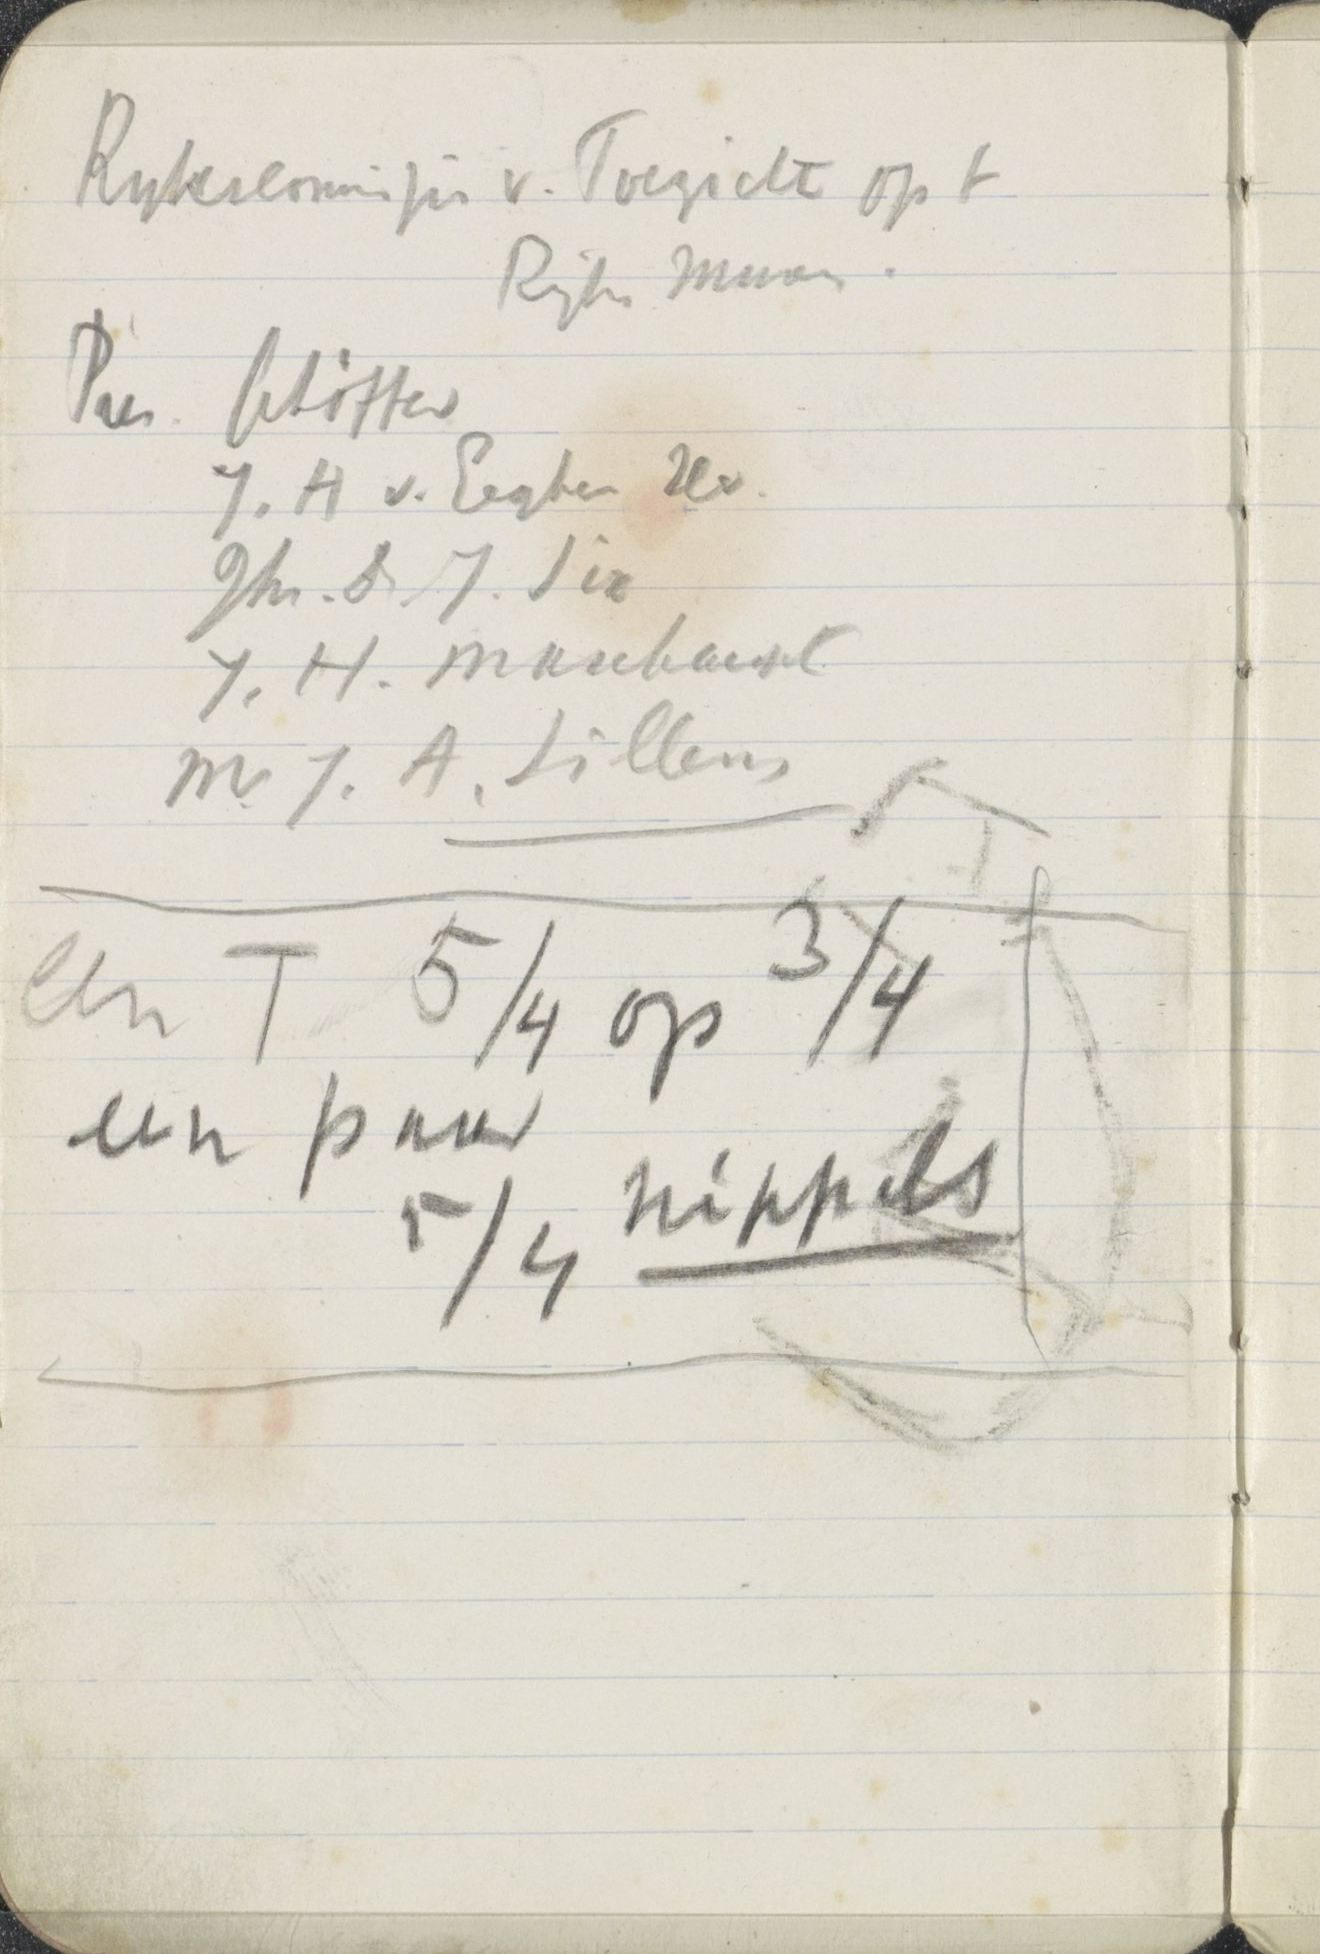 Rykscommissie v. Toezicht op t
Rijks Museum.
Pres. Schöffer
J. H v. Eeghen
Jhr. Dr J. Six
J. H. Maschaupt
Mr J. A. Sillem
Een T 5/4 op 3/4
een paar
5/4 nippels